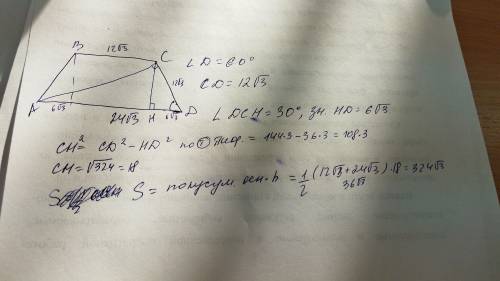 B 12√3 C
∠D = 60°
12√3
CD = 12√3
A 6√3 24√3 H 6√3 D
∠DCH = 30°, зн. HD = 6√3
CH² = CD² - HD² по т Пиф. = 144·3 - 36·3 = 108·3
CH = √324 = 18
S = полусум. осн · h = 1/2 (12√3 + 24√3) · 18 = 324√3
36√3